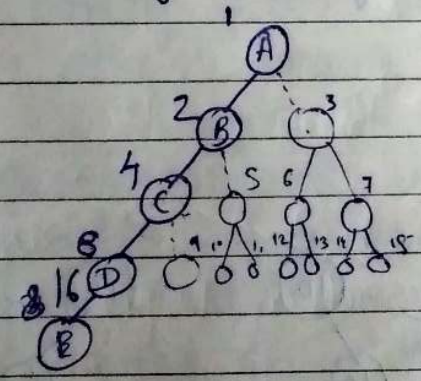 1
A
2 B 3
4 C 5 6 7
8 D 9 10 11 12 13 14 15
16 E